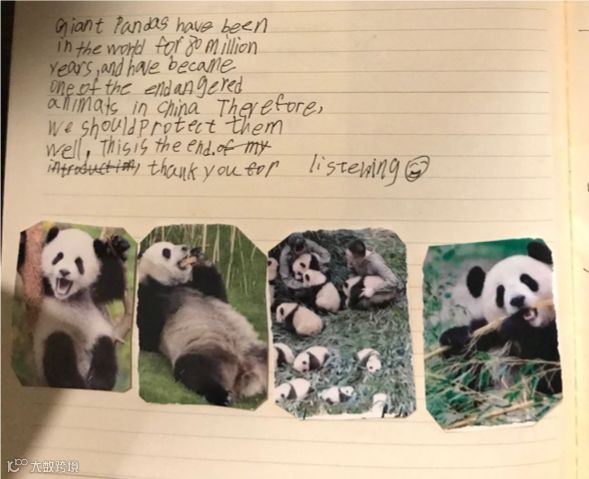 Giant Pandas have been
in the world for 80 million
years, and have became
one of the endangered
animals in china Therefore,
we should protect them
well, This is the end of my
introduction, thank you for listening
大数跨境